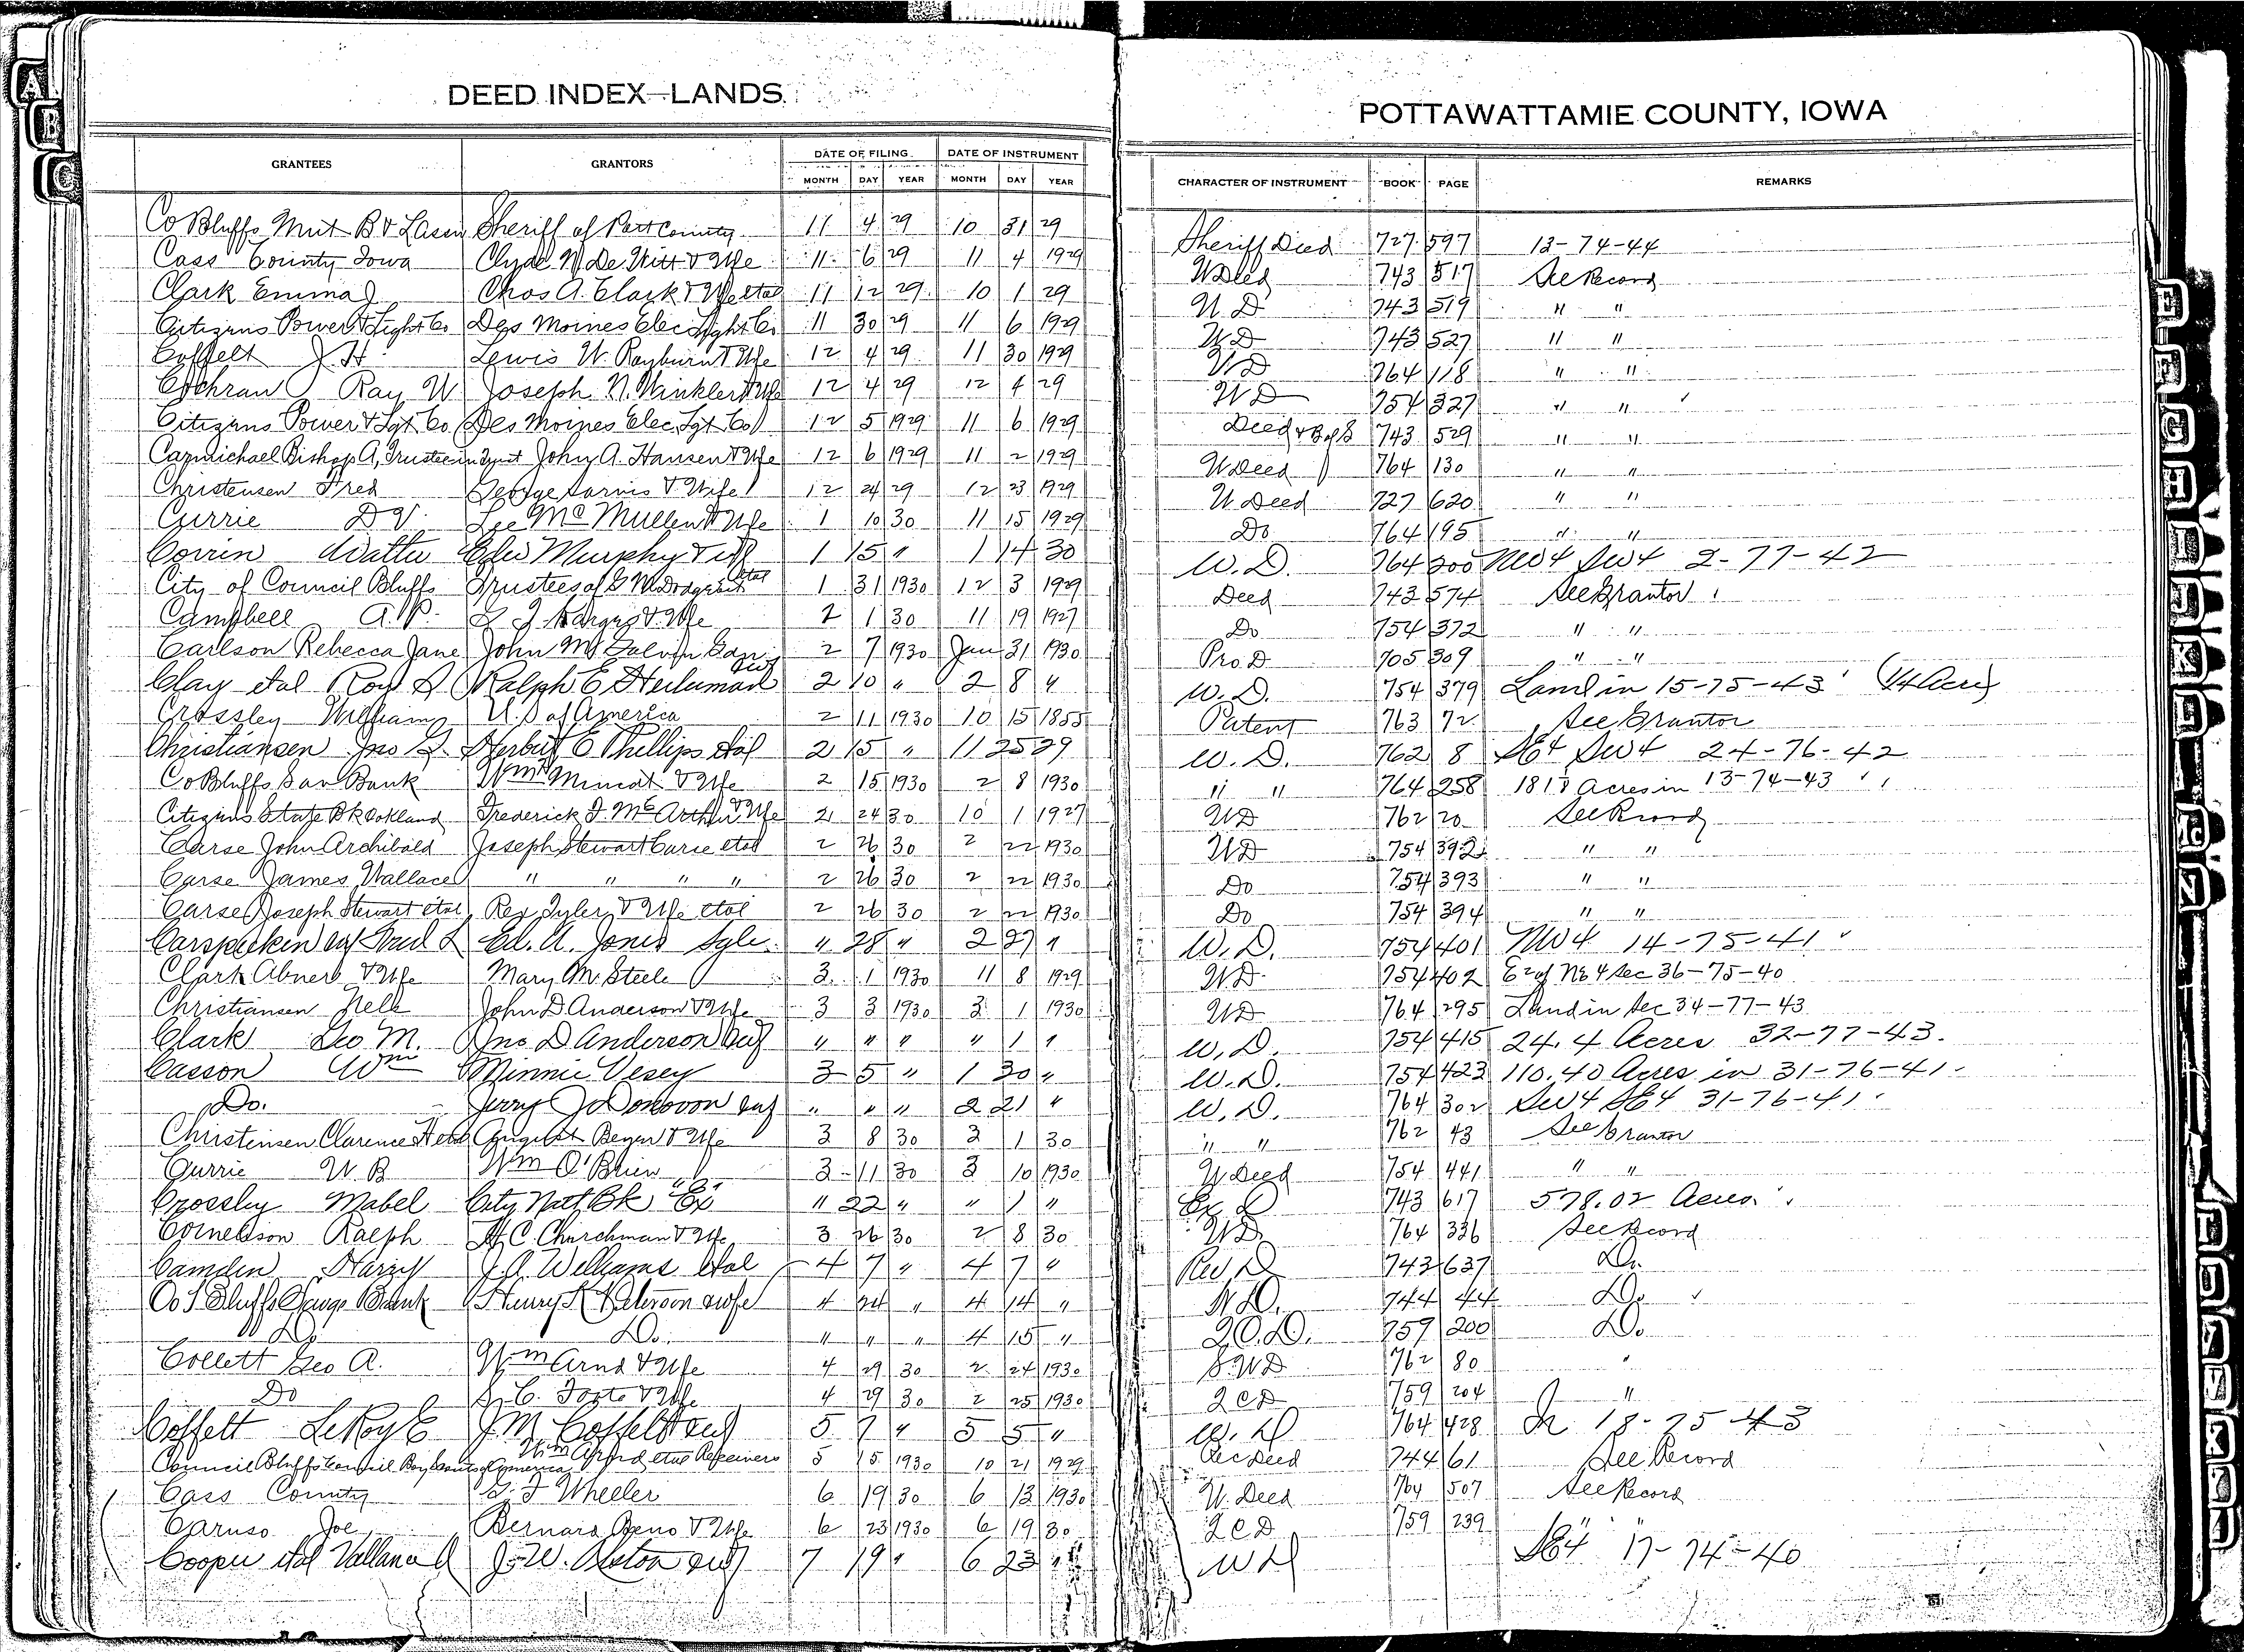 DEED INDEX—LANDS
POTTAWATTAMIE COUNTY, IOWA
GRANTEES GRANTORS DATE OF FILING DATE OF INSTRUMENT CHARACTER OF INSTRUMENT BOOK PAGE REMARKS
MONTH DAY YEAR MONTH DAY YEAR
Co Bluffs Mut B & L Assn Sheriff of Pott County 11 4 29 10 31 29 Sheriff Deed 727 597 13-74-44
Cass County Iowa Clyde De Witt & Wfe 11 6 29 11 4 1929 W Deed 743 517 See Record
Clark Emma J Chas A. Clark & Wfe etal 11 12 29 10 1 29 W D 743 519 " "
Citizens Power & Light Co Des Moines Elec Light Co 11 30 29 11 6 1929 W D 743 527 " "
Coffelt J. H. Lewis W. Rayburn & Wfe 12 4 29 11 30 1929 W D 764 118 " "
Cochran Ray W Joseph N. Winkler & Wfe 12 4 29 12 4 29 W D 754 327 " "
Citizens Power & Lgt Co Des Moines Elec Lgt Co 12 5 1929 11 6 1929 Deed & B of S 743 529 " "
Carmichael Bishop A, Trustee in John A. Hansen & Wfe 12 6 1929 11 2 1929 W Deed 764 130 " "
Christensen Fred George Sarvis & Wife 12 24 29 12 23 1929 W Deed 727 620 " "
Currie D V. Lee McMullen & Wfe 1 10 30 11 15 1929 Do 764 195 " "
Corrin Murphy 1 15 " 1 14 30 W. D. 764 200 NW4 SW4 2-77-42
City of Council Bluffs Trustees of G M Dodge etal 1 31 1930 12 3 1929 Deed 743 574 See Grantor
Campbell A. P. & Wfe 2 1 30 11 19 1927 Do 754 372 " "
Carlson Rebecca Jane John M Galvin Gdn 2 7 1930 Jan 31 1930 Pro. D 705 309 " "
Clay etal Roy S Ralph E 2 10 " 2 8 " W. D. 754 379 Land in 15-75-43 (14 Acre)
Crossley William U. S of America 2 11 1930 10 15 1855 Patent 763 72 See Grantor
Christiansen Jno Herbert E Phillips etal 2 15 " 11 25 29 W. D. 762 8 SE4 SW4 24-76-42
Co Bluffs Sav Bank Wm & Wfe 2 15 1930 2 8 1930 " " 764 258 Acres in 13-74-43
Citizens State Bk Oakland Frederick J. McArthur & Wfe 2 24 30 10 1 1927 WD 762 20 See Record
Carse John Archibald Joseph Stewart Carse etal 2 26 30 2 22 1930 WD 754 392 " "
Carse James Wallace " " " " 2 26 30 2 22 1930 Do 754 393 " "
Carse Joseph Stewart etal Rex Tyler & Wfe etal 2 26 30 2 22 1930 Do 754 394 " "
Carspecken Ed. A. Jones " 28 " 2 27 " W. D. 754 401 NW4 14-75-41
Clark Abner & Wfe Mary M. Steele 3 1 1930 11 8 1929 WD 754 402 E2 of NE4 Sec 36-75-40
Christiansen Nels John D Anderson & Wfe 3 3 1930 3 1 1930 WD 764 295 Land in Sec 34-77-43
Clark Geo M. Jno D Anderson " " " " 1 " W. D. 754 415 24.4 Acres 32-77-43.
Casson Wm Minnie Vesey 3 5 " 1 30 " W. D. 754 423 110.40 Acres in 31-76-41
Do. Jerry J Donovan " " " 2 21 " W. D. 764 302 SW4 SE4 31-76-41
Christensen Clarence August Beyer & Wfe 3 8 30 3 1 30 " " 762 43 See Grantor
Currie W. B Wm O'Brien 3 11 30 3 10 1930 W Deed 754 441 " "
Crossley Mabel City Natl Bk Ex " 22 " " 1 " Ex D 743 617 578.02 Acres
Cornelison Ralph H. C. Churchman & Wfe 3 26 30 2 8 30 W D. 764 336 See Record
Camden Harry J. A Williams etal 4 7 " 4 7 " 743 637 Do.
Co Bluffs Savgs Bank Henry Peterson & wfe 4 24 " 4 14 " W. D. 744 44 Do
Do Do. " " " 4 15 " Q. C. D. 759 200 Do
Collett Geo A. Wm Arnd & Wfe 4 29 30 2 24 1930 S. W D 762 80 "
Do C. & Wfe 4 29 30 2 25 1930 Q C D 759 204 "
Coffelt LeRoy E J. M. Coffelt 5 7 " 5 5 " W. D 764 428 In 18-75-43
Council Bluffs Council Boy Scouts of America Wm etal Receivers 5 15 1930 10 21 1929 Rec Deed 744 61 See Record
Cass County Wheeler 6 19 30 6 13 1930 W. Deed 764 507 See Record
Caruso Joe Bernard Reno & Wfe 6 23 1930 6 19 30 Q C D 759 239
Cooper etal J. W. 7 19 " 6 23 " W D SE4 17-74-40
A
B
C
E
F
G
H
I
J
K